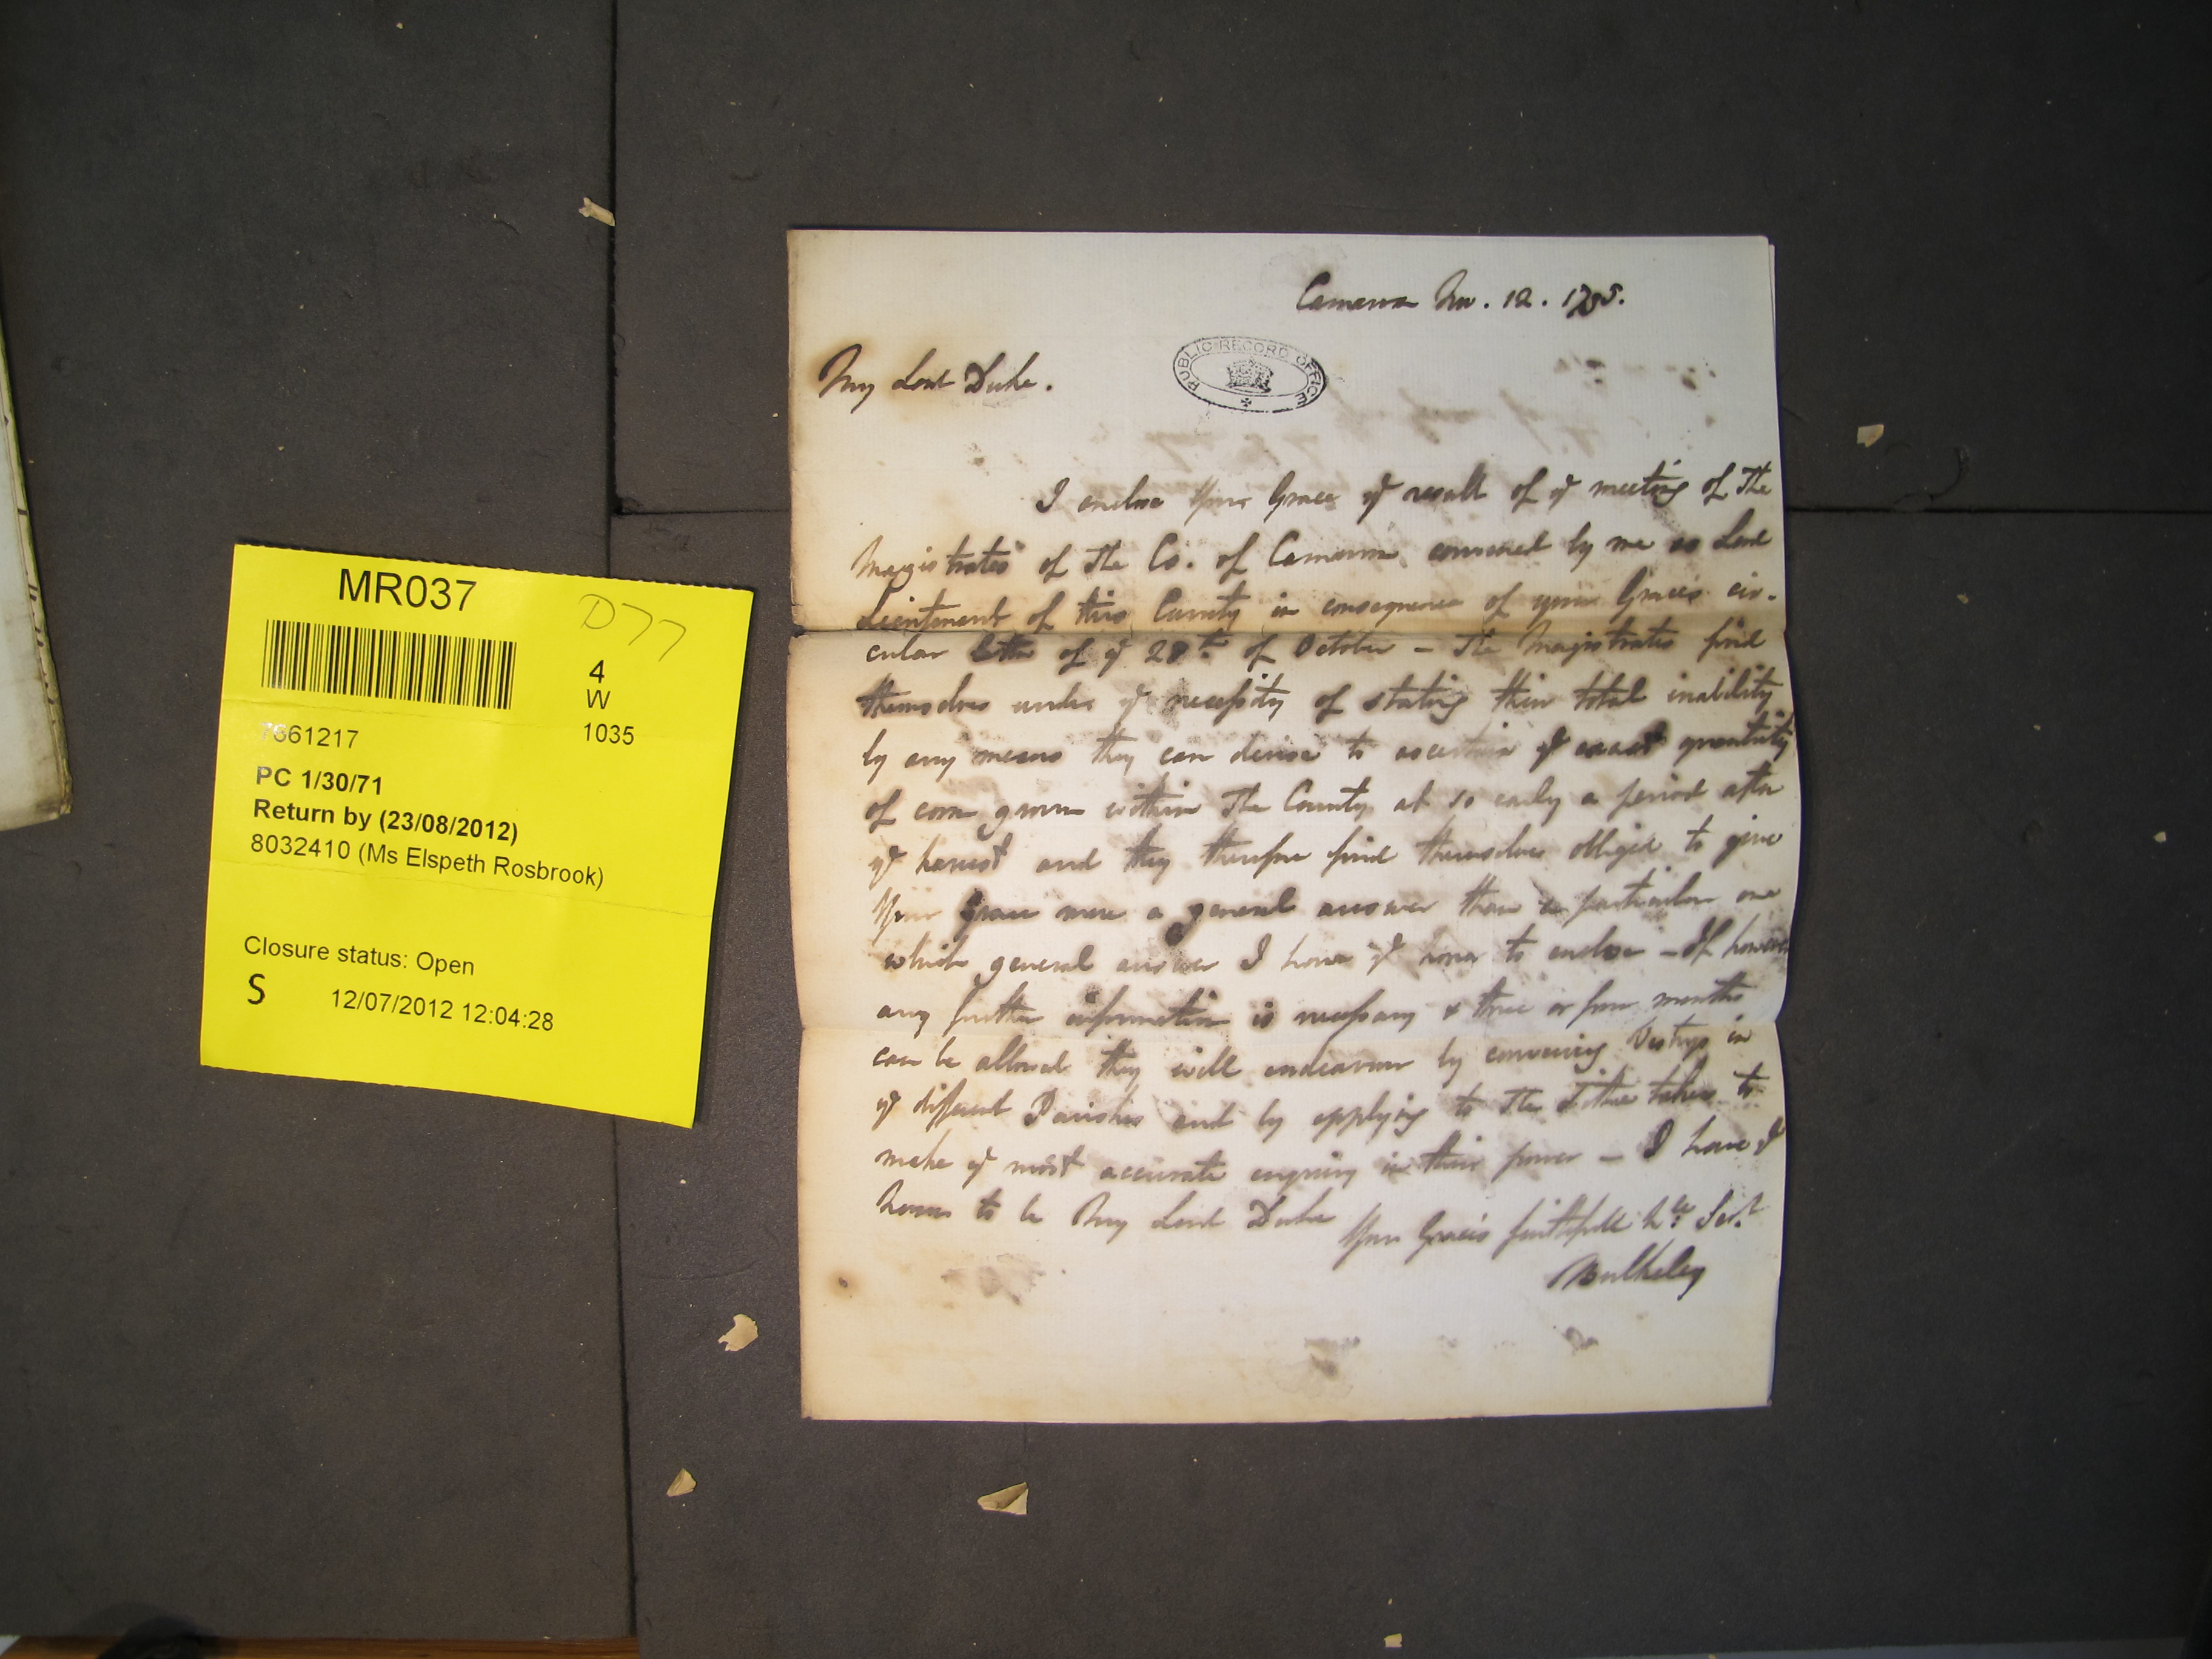 MR037
D77
4
W
7661217
1035
PC 1/30/71
Return by (23/08/2012)
8032410 (Ms Elspeth Rosbrook)
Closure status: Open
S
12/07/2012 12:04:28
Carnarvon Nov. 12. 1795.
PUBLIC RECORD OFFICE
My Lord Duke.
I enclose Your Grace ye result of ye meeting of The
Magistrates of The Co. of Carnarvon convened by me as Lord
Lieutenant of this County in consequence of your Grace's cir-
cular letter of ye 28th of October - The Magistrates find
themselves under ye necessity of stating their total inability
by any means they can devise to ascertain ye exact quantity
of corn grown within The County at so early a period after
ye harvest and they therefore find themselves obliged to give
Your Grace more a general answer than a particular one
which general answer I have ye honor to enclose - If however
any further information is necessary & three or four months
can be allowed they will endeavour by convening Vestrys in
ye different Parishes and by applying to The Tithe takers to
make ye most accurate enquiry in their power - I have ye
honor to be My Lord Duke
Your Grace's faithfull hle Sert
Bulkeley